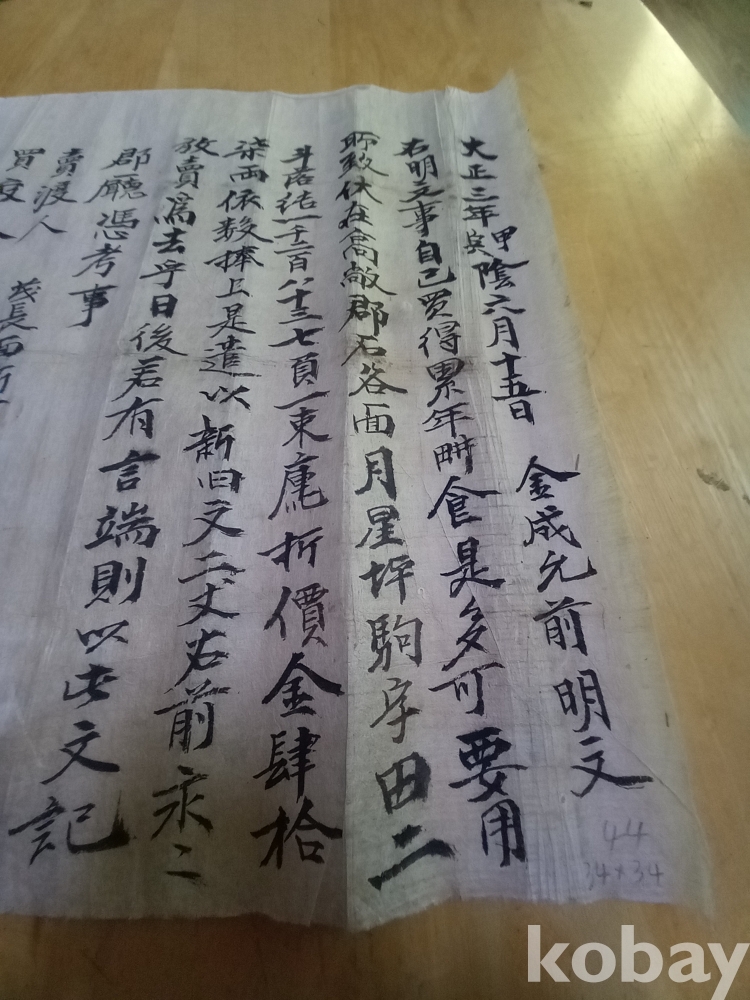 大正三年甲寅陰六月十五日 金成允前明文
右明文事自己買得累年畊食是多可要用
所致伏在高敞郡石谷面月星坪駒字田二
斗落結一千二百八十三七頁一束庫折價金肆拾
柒兩依數捧上是遣以新旧文二丈右前永〻
放賣爲去乎日後若有言端則以此文記
郡廳憑考事
賣渡人
買渡人 長面
44
34×34
kobay